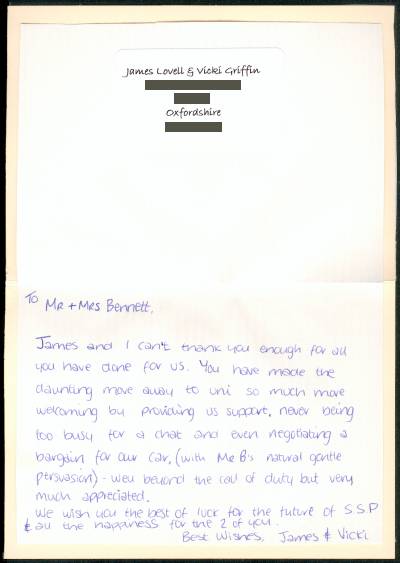 James Lovell & Vicki Griffin
Oxfordshire
To Mr + Mrs Bennett,
James and I can't thank you enough for all
you have done for us. You have made the
daunting move away to uni so much more
welcoming by providing us support, never being
too busy for a chat and even negotiating a
bargain for our car, (with Mr B's natural gentle
persuasion) - well beyond the call of duty but very
much appreciated.
We wish you the best of luck for the future of SSP
& all the happiness for the 2 of you.
Best Wishes, James & Vicki